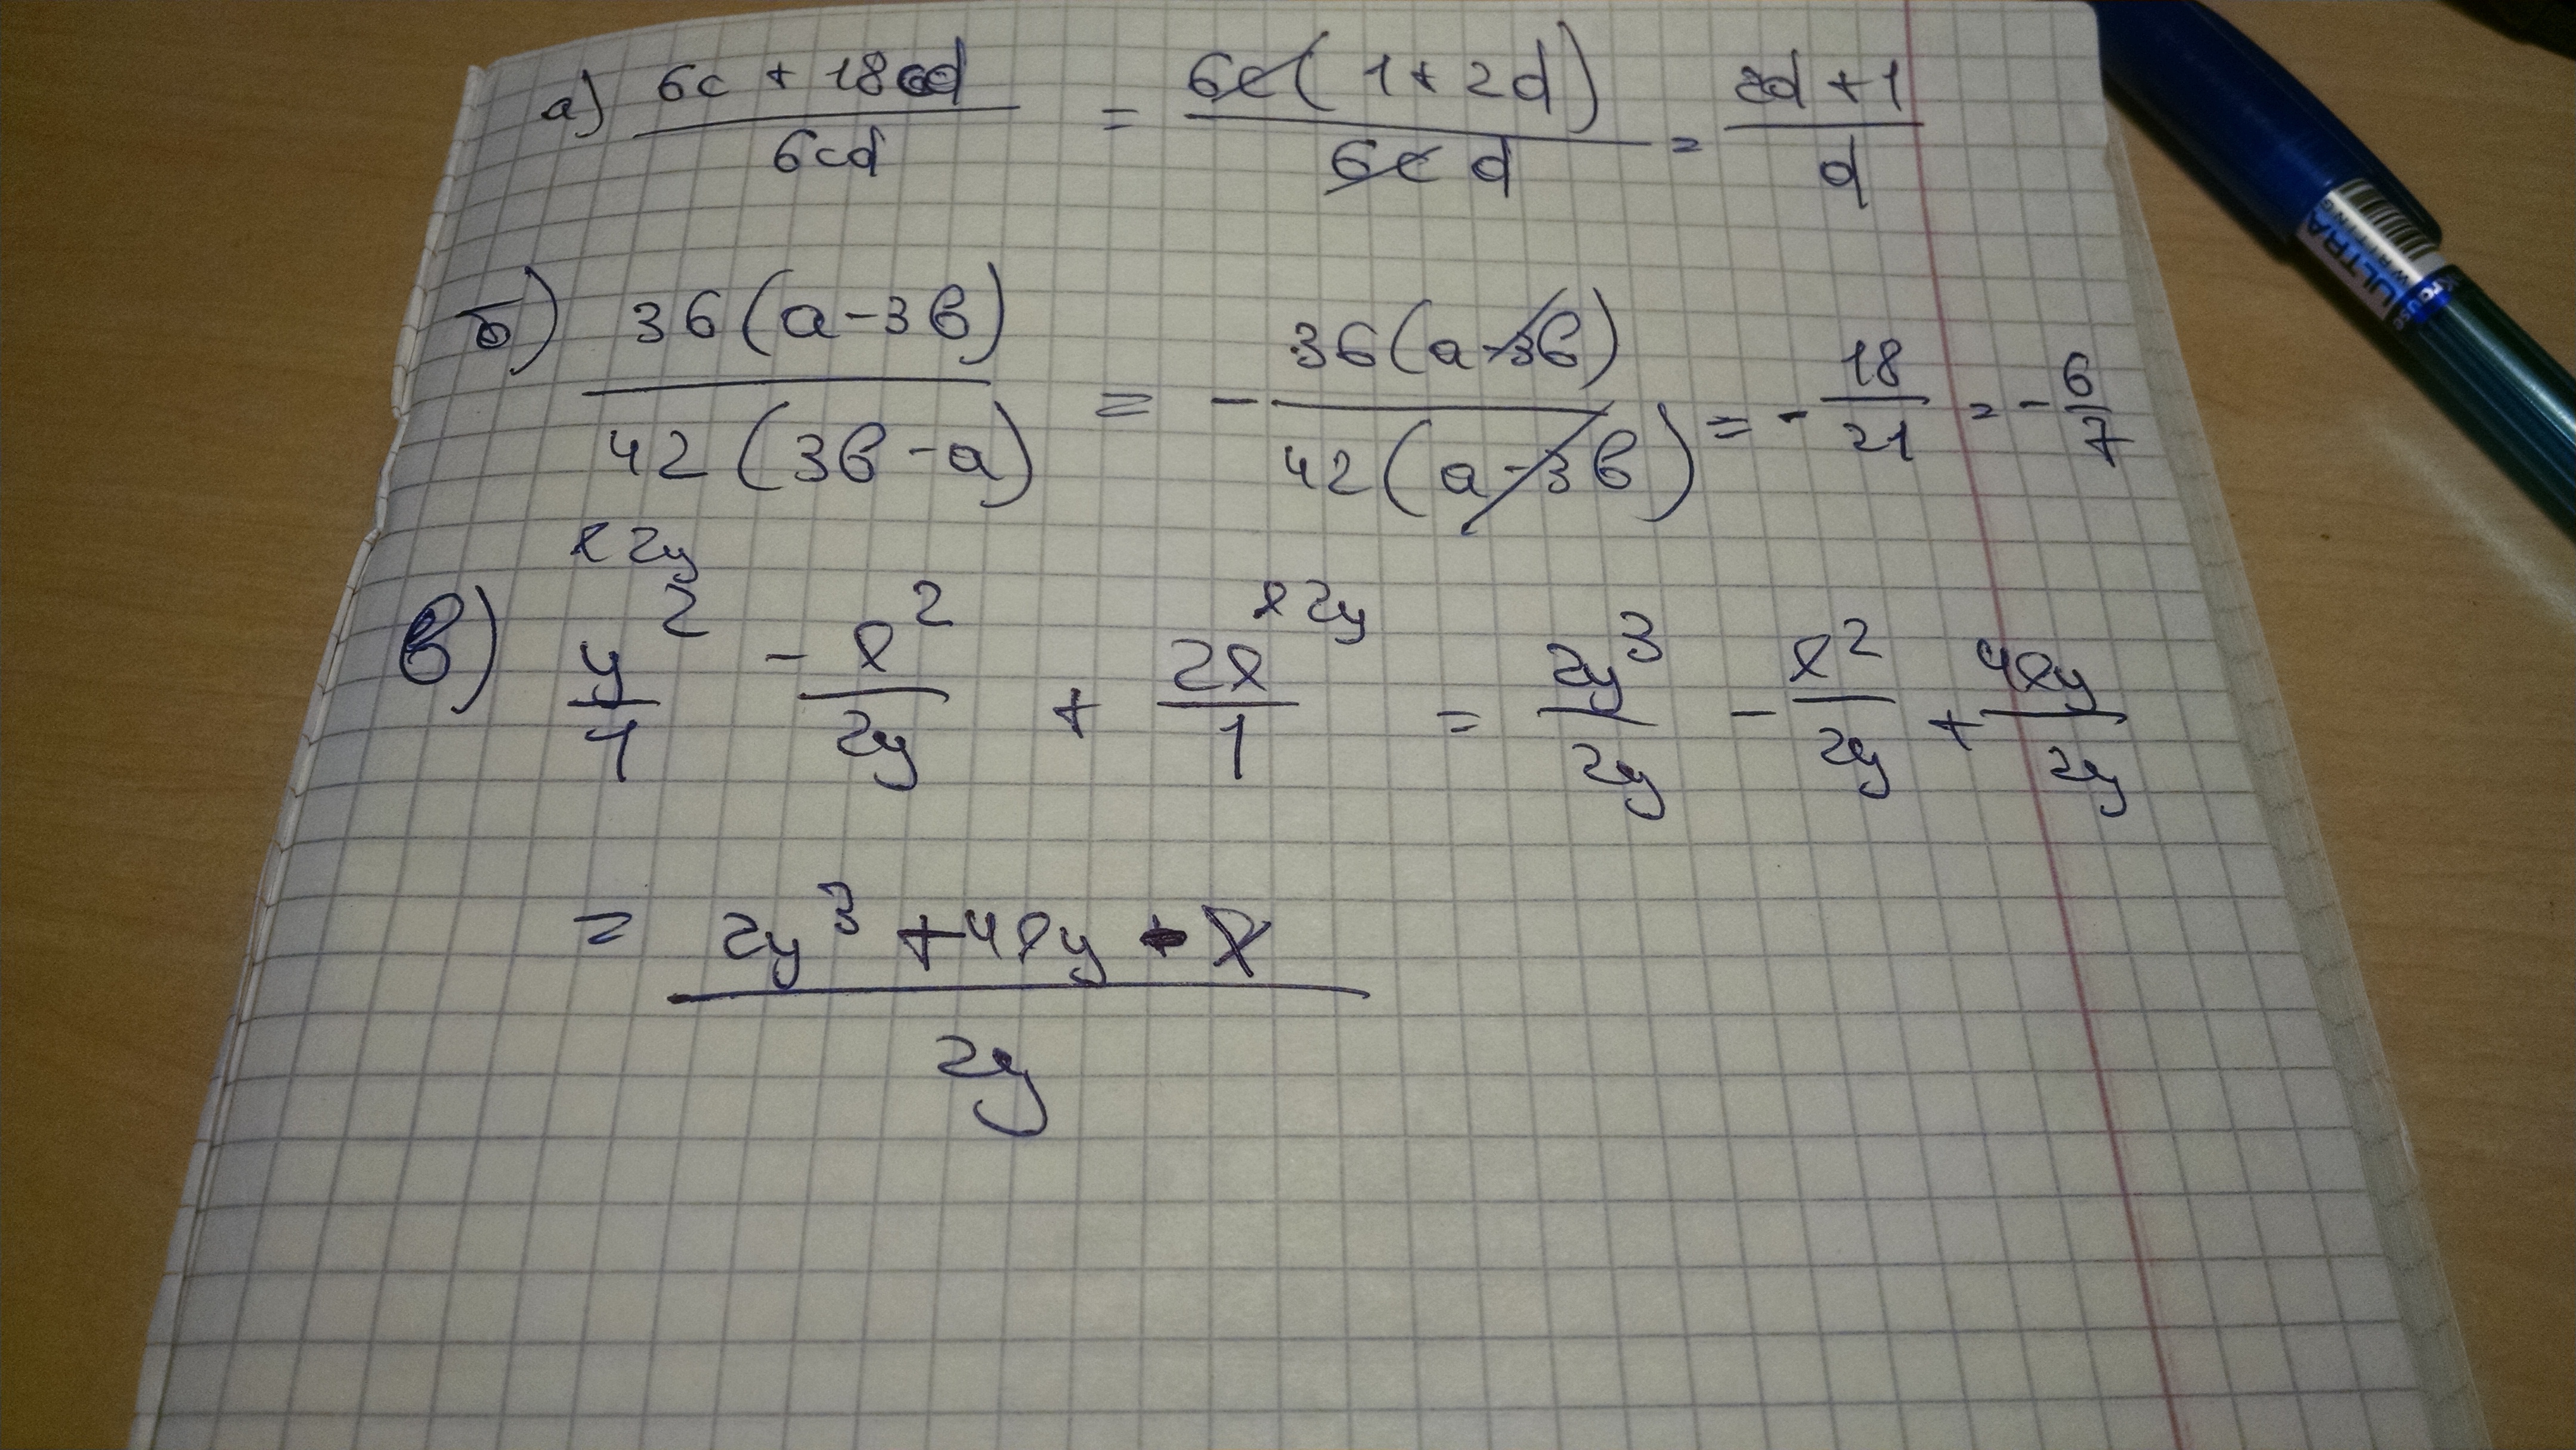 а) (6c + 18cd)/(6cd) = (6c(1 + 2d))/(6c d) = (2d + 1)/d
б) (36(a-3b))/(42(3b-a)) = -(36(a-3b))/(42(a-3b)) = -18/21 = -6/7
x2y x2y
в) y²/1 - x²/2y + 2x/1 = 2y³/2y - x²/2y + 4xy/2y
= (2y³ + 4xy - x)/2y
ULTRA
WRITING